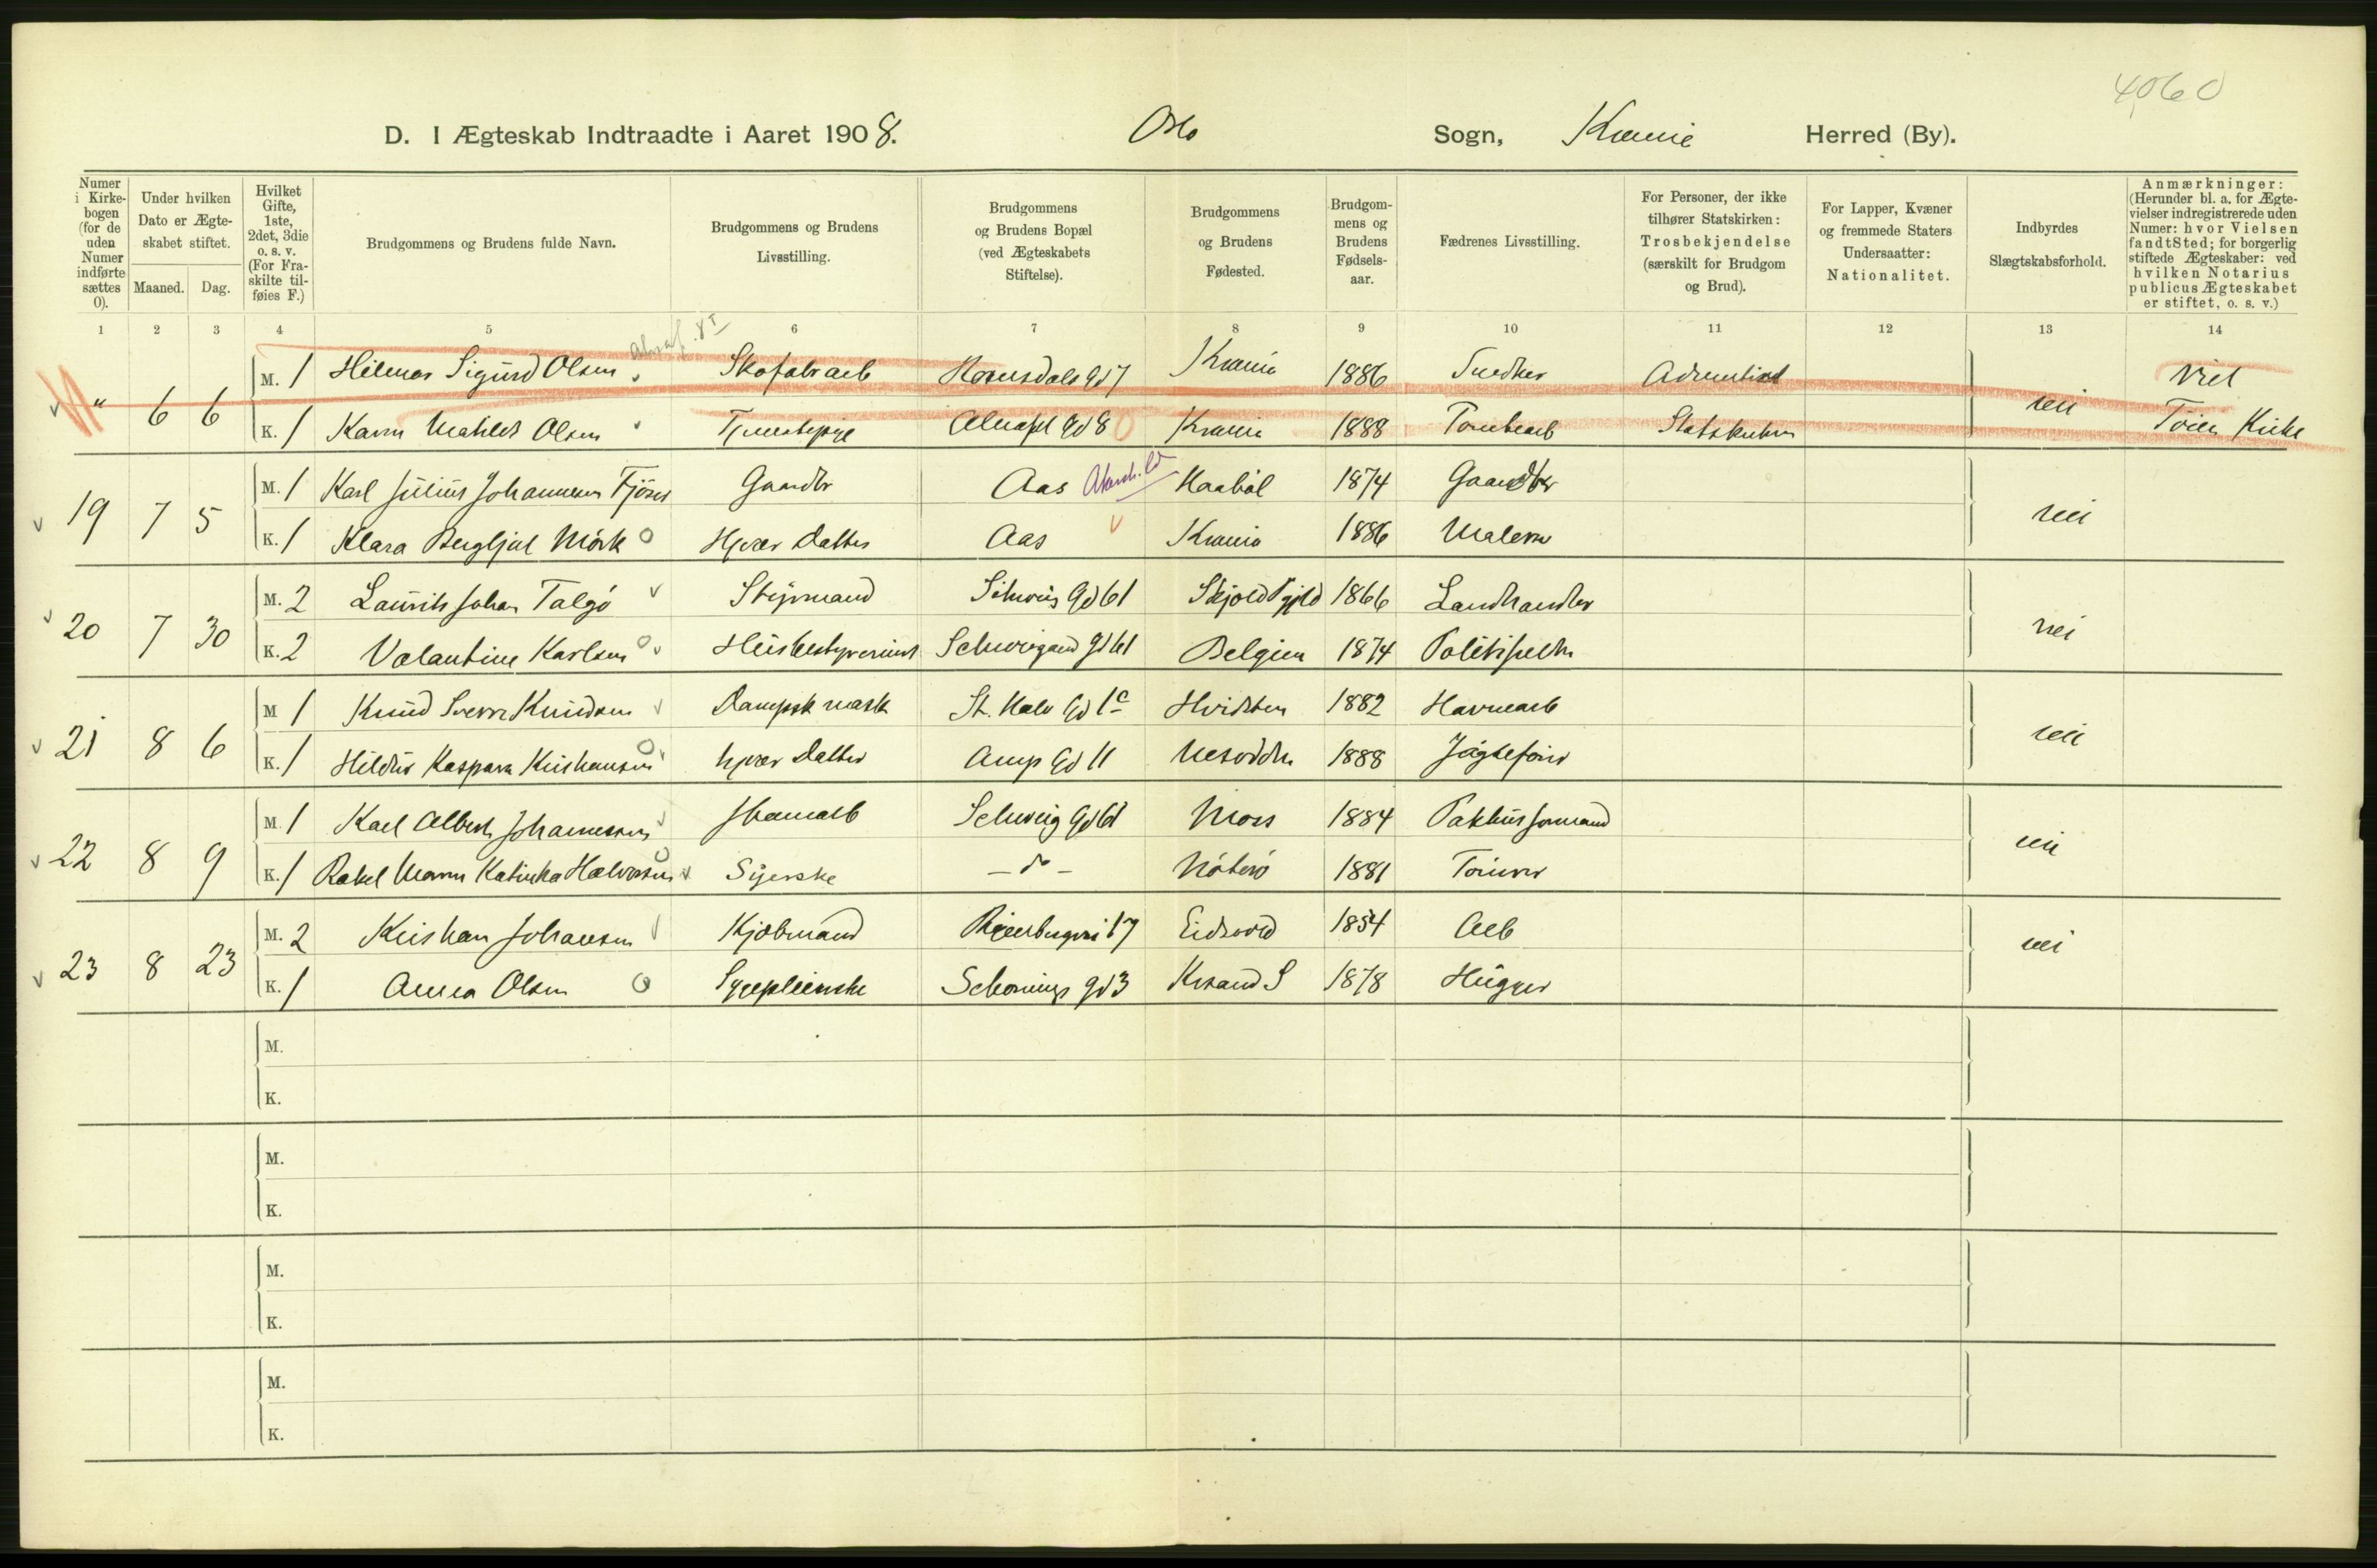 4060
D. I Ægteskab Indtraadte i Aaret 1908. Oslo Sogn, Krania Herred (By).
Numer i Kirke-bogen (for de uden Numer indførte sættes 0).
Under hvilken Dato er Ægte-skabet stiftet.
Maaned. Dag.
Hvilket Gifte, 1ste, 2det, 3die o. s. v. (For Fra-skilte til-føies F.)
Brudgommens og Brudens fulde Navn.
Brudgommens og Brudens Livsstilling.
Brudgommens og Brudens Bopæl (ved Ægteskabets Stiftelse).
Brudgommens og Brudens Fødested.
Brudgom-mens og Brudens Fødsels-aar.
Fædrenes Livsstilling.
For Personer, der ikke tilhører Statskirken: Trosbekjendelse (særskilt for Brudgom og Brud).
For Lapper, Kvæner og fremmede Staters Undersaatter: Nationalitet.
Indbyrdes Slægtskabsforhold.
Anmærkninger: (Herunder bl. a. for Ægte-vielser indregistrerede uden Numer: hvor Vielsen fandt Sted; for borgerlig stiftede Ægteskaber: ved hvilken Notarius publicus Ægteskabet er stiftet, o. s. v.)
1 2 3 4 5 6 7 8 9 10 11 12 13 14
" 6 6 M. 1 Hilmar Sigurd Olsen Skofabrarb Romsdals Gd 7 Krania 1886 Snedker Adventist nei Viet
K. 1 Karen Mahilds Olsen Tjenestepige Almapl Gd 8 Krania 1888 Tomtearb Statskirken Tøien Kirke
19 7 5 M. 1 Karl Julius Johannesen Fjöser Gaardbr Aas Akersh. Kraabøl 1874 Gaardbr nei
K. 1 Klara Bergljot Mörk Hjver Datter Aas Krania 1886 Malerm
20 7 30 M. 2 Laurits Johan Talgö Styrmand Schweig Gd 61 Skjold Pgjld 1866 Landhandler nei
K. 2 Valentine Karlsen Husbestyrerinde Schweigaard Gd 61 Belgien 1874 Politibetj
21 8 6 M 1 Knud Sverre Knudsen Dampsk mask St. Halv Gd 1c Hvidsten 1882 Havnearb nei
K. 1 Hildur Kaspara Kristiansen hjver Datter Amp Gd 11 Nesodden 1888 Jægtefører
22 8 9 M. 1 Karl Albert Johannessen Schweig Gd 61 Moss 1884 Pakhusformand nei
K. 1 Rakel Maren Katinka Halvorsen Syerske – do – Nöterö 1881 Tömrer
23 8 23 M. 2 Kristian Johansen Kjøbmand 17 Eidsvold 1854 Arb nei
K. 1 Anna Olsen Sygepleierske Schønings Gd 3 Krsand S 1878 Hugger
M.
K.
M.
K.
M.
K.
M.
K.